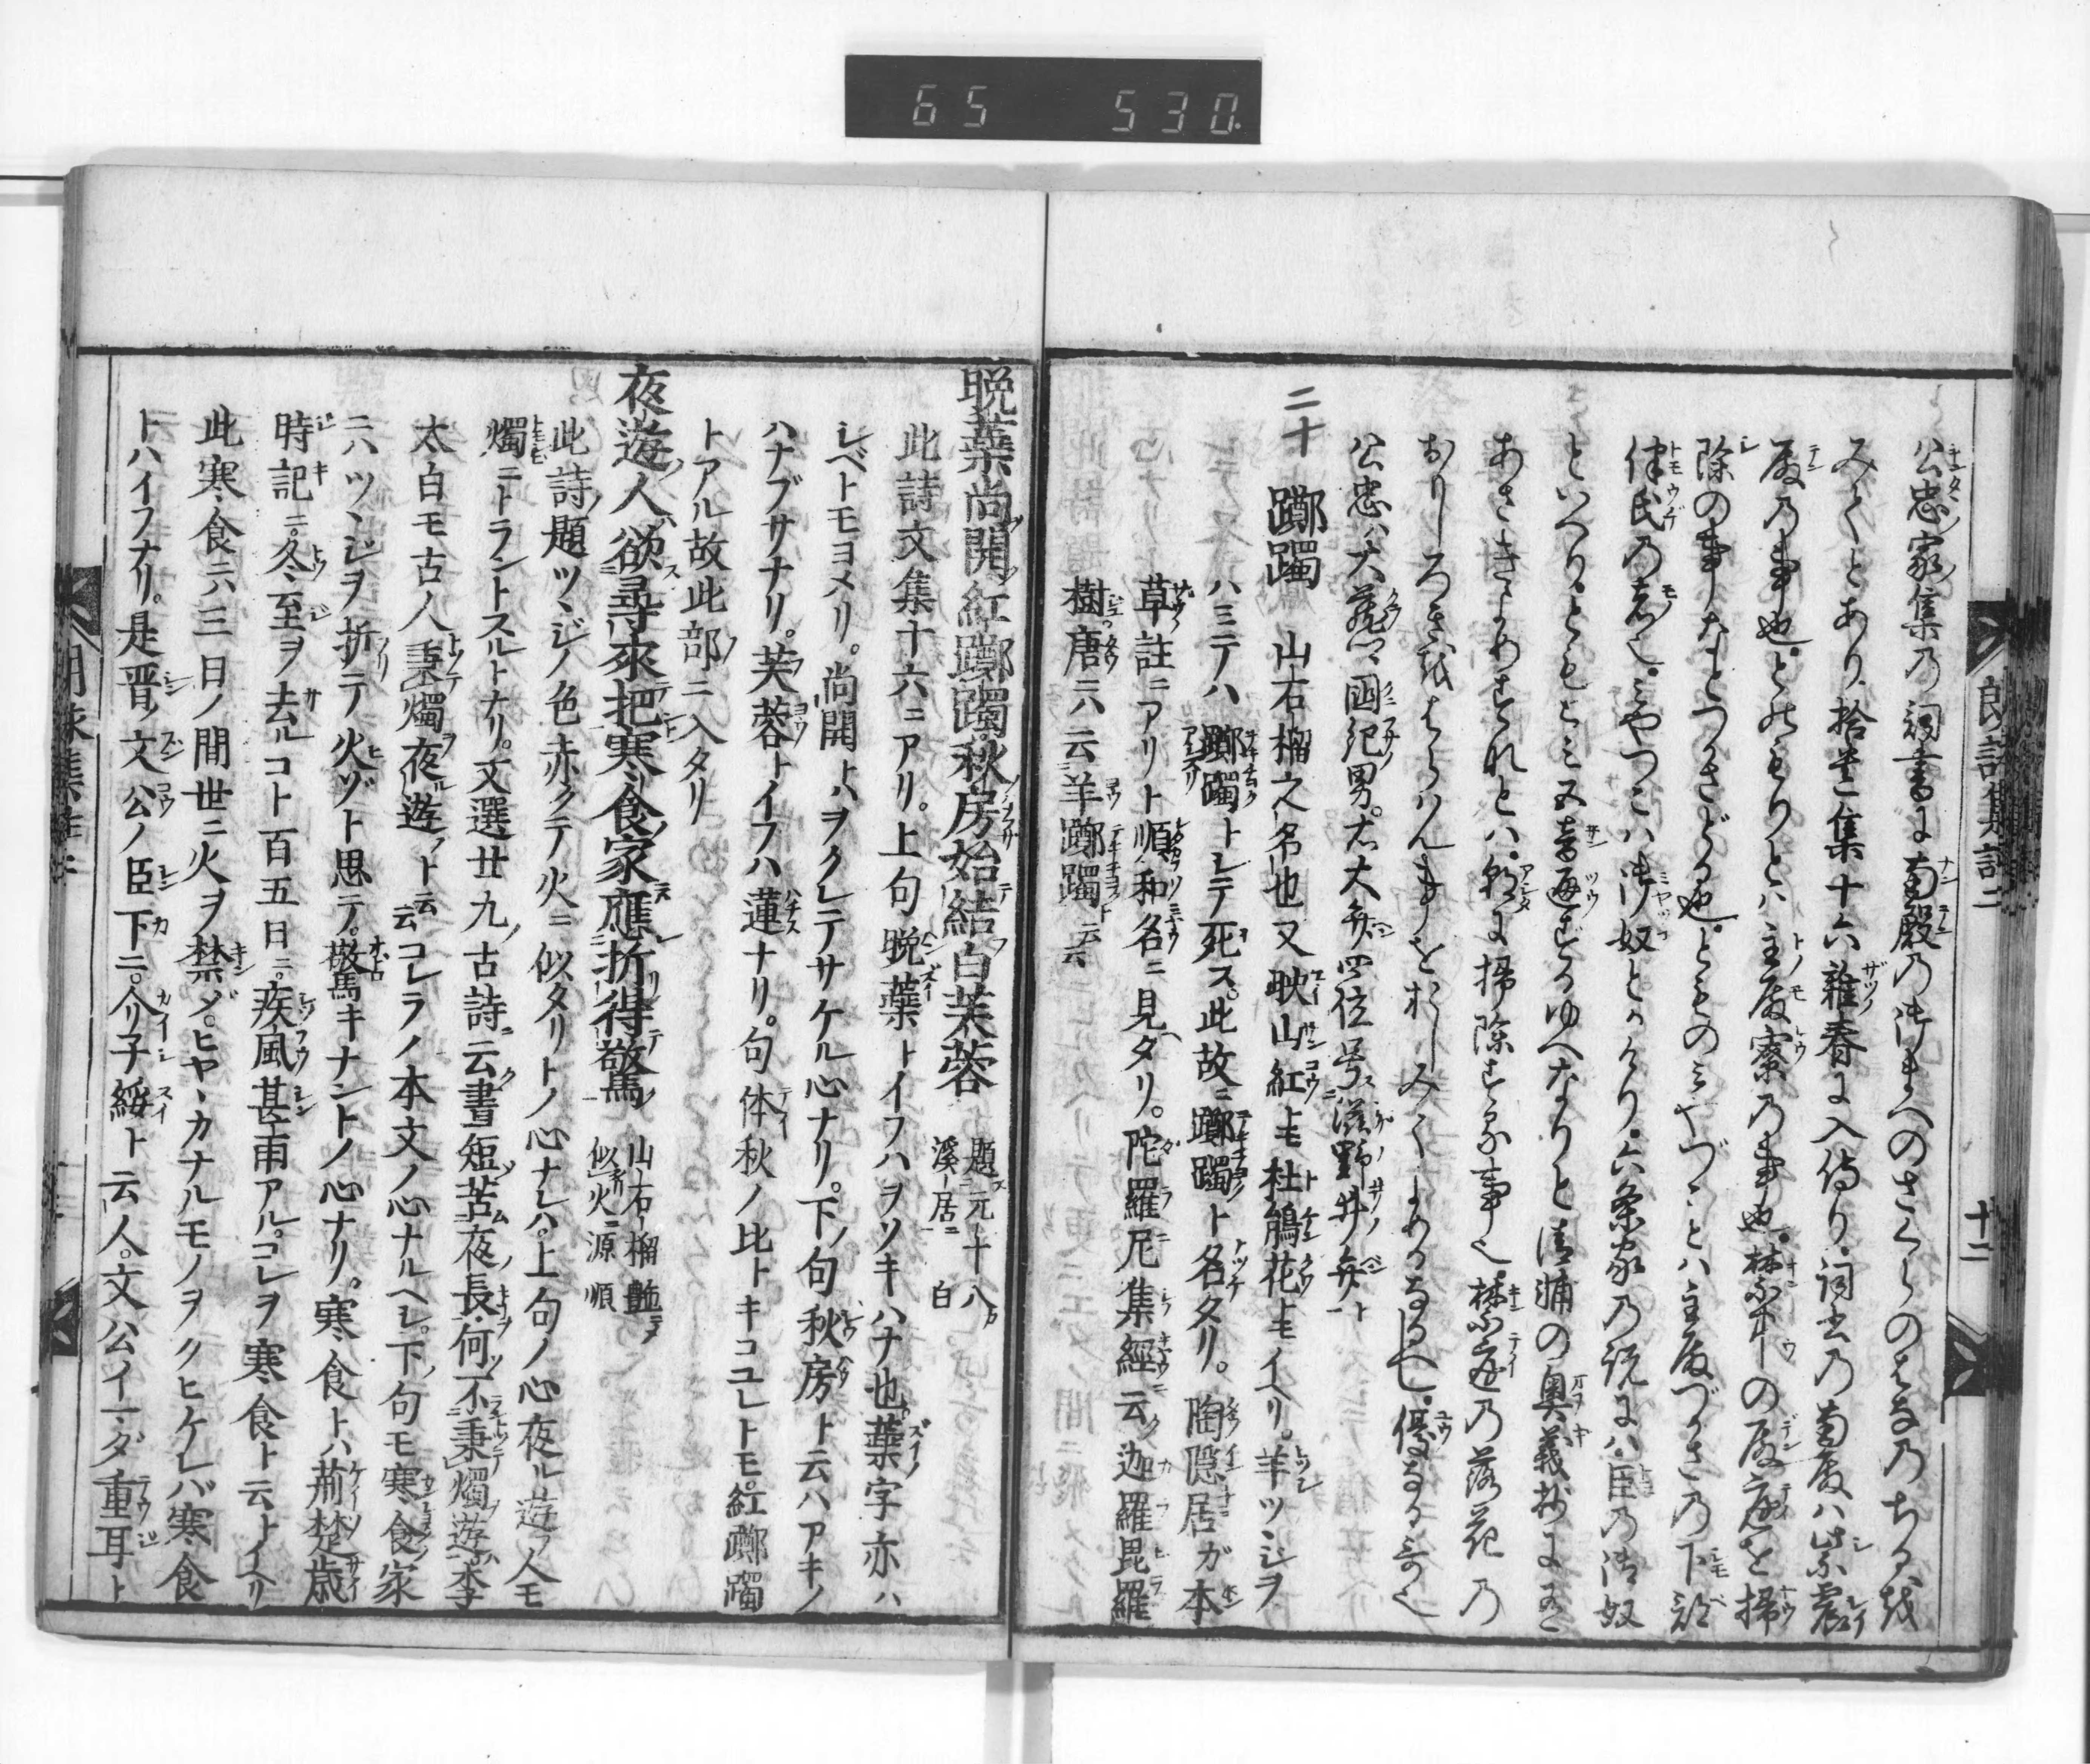 65 530.
公忠家集乃詞書に南殿乃御まへのさくらのはな乃ちるを
みてとあり拾遺集十六雜春に入侍り詞書乃南殿ハ紫宸
殿乃事也とのもりとハ主殿寮乃事也禁中の殿庭を掃
除の事なとつかさどる也とものみやづことハ主殿づかさ乃下部
伴氏乃者也みやつこハ御奴とかけり六条家乃説にハ臣乃御奴
といへりともとみ五音通ずるゆへなりと清輔の奥義抄に
あさきよめすれとハ朝に掃除する事也禁庭乃落花乃
おもしろきをはらハん事をおしみてよめるなるへし優なる哥也
公忠ハ大蔵卿國紀男右大弁四位号滋野井弁ト
二十
躑躅 山石榴之名也又映山紅トモ杜鵑花トモイヘリ羊ツヽジヲ
ハミテハ躑躅トシテ死ス此故ニ躑躅ト名タリ陶隠居ガ本
草註ニアリト順和名ニ見タリ陀羅尼集經云迦羅毘羅
樹唐ニハ云羊躑躅ト云云
朗詠集註二
十二
晩蘂尚開紅躑躅秋房始結白芙蓉 題元十八溪居 白
此詩文集十六ニアリ上句晩蘂トイフハヲソキハナ也蘂字亦ハ
シベトモヨメリ尚開トハヲクレテサケル心ナリ下句秋房ト云ハアキノ
ハナブサナリ芙蓉トイフハ蓮ナリ句体秋ノ比トキコユレトモ紅躑躅
トアル故此部ニ入タリ
夜遊人欲尋來把寒食家應折得驚 山石榴艶似火 源順
此詩題ツヽジノ色赤クテ火ニ似タリトノ心ナレハ上句ノ心夜ル遊フ人モ
燭ニトラントスルトナリ文選廿九古詩云晝短苦夜長何不秉燭遊李
太白モ古人秉燭夜遊ト云云コレラノ本文ノ心ナルヘシ下句モ寒食家
ニハツヽジヲ折テ火ゾト思テ驚キナントノ心ナリ寒食トハ荊楚歳
時記ニ冬至ヲ去ルコト百五日ニ疾風甚雨アルコレヲ寒食ト云トイヘリ
此寒食ニハ三日ノ間世ニ火ヲ禁ゾヒヤヽカナルモノヲクヒケレバ寒食
トハイフナリ是晋ノ文公ノ臣下ニ介子綏ト云人文公イマダ重耳ト